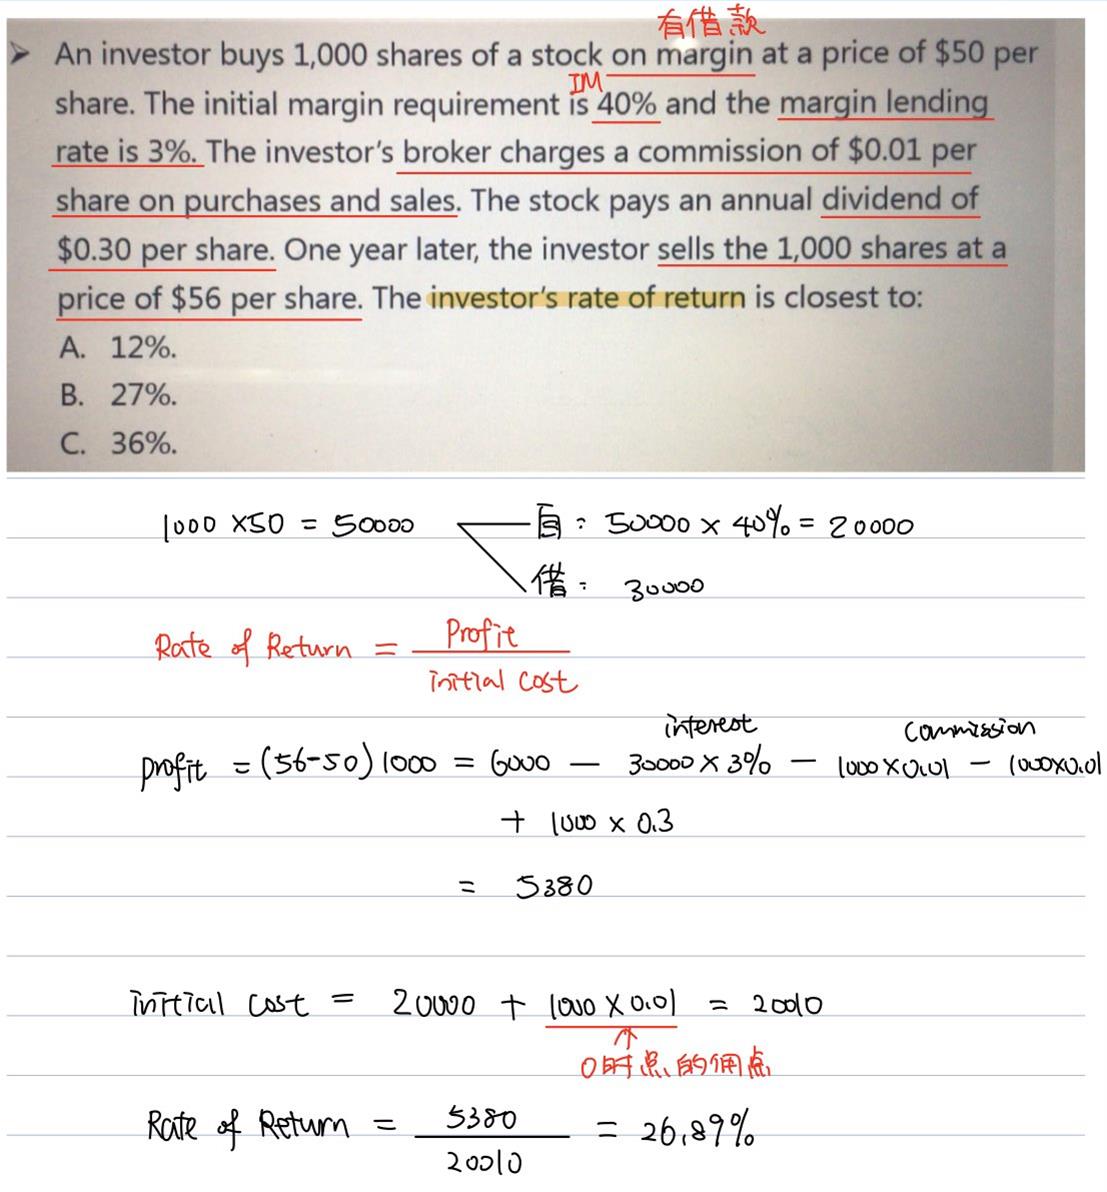 有借款
➤ An investor buys 1,000 shares of a stock on margin at a price of $50 per
IM
share. The initial margin requirement is 40% and the margin lending
rate is 3%. The investor's broker charges a commission of $0.01 per
share on purchases and sales. The stock pays an annual dividend of
$0.30 per share. One year later, the investor sells the 1,000 shares at a
price of $56 per share. The investor's rate of return is closest to:
A. 12%.
B. 27%.
C. 36%.
1000 × 50 = 50000 自: 50000 × 40% = 20000
借: 30000
Rate of Return = Profit
initial cost
interest commission
profit = (56-50) 1000 = 6000 - 30000 × 3% - 1000 × 0.01 - 1000×0.01
+ 1000 × 0.3
= 5380
initial cost = 20000 + 1000 × 0.01 = 20010
0时点的佣点
Rate of Return = 5380 = 26.89%
20010